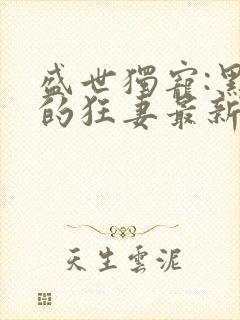 盛世獨寵:黑
的狂妻最新
天生雲泥